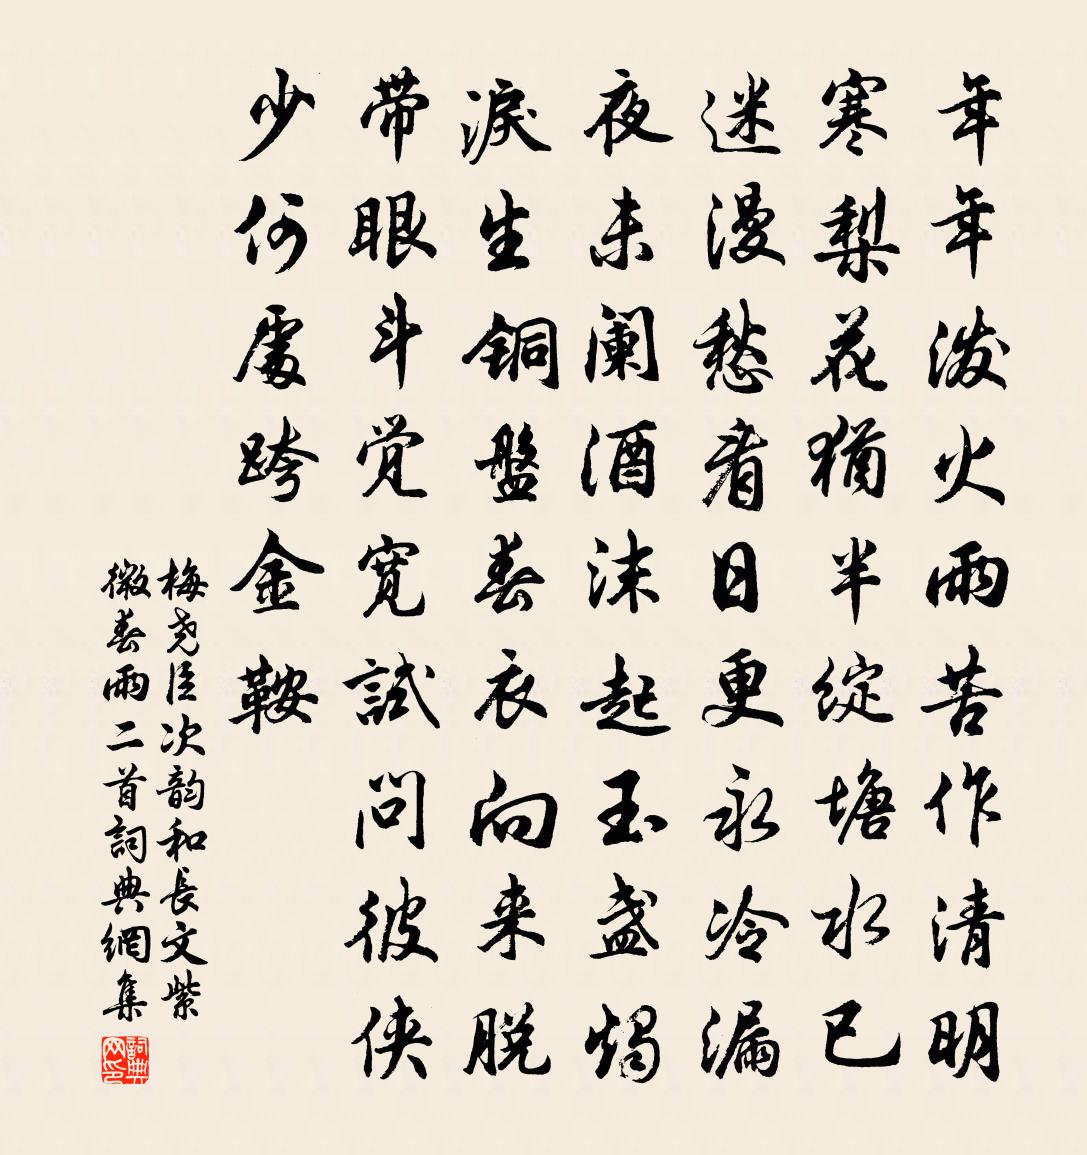 年年泼火雨苦作清明
寒梨花猶半綻塘水已
迷漫愁看日更永冷漏
夜未阑酒沫起玉盏燭
淚生銅盤春衣向来脱
带眼斗觉宽試问彼侠
少何處跨金鞍
梅尧臣次韵和長文紫
微春雨二首詞典網集
詞典
网印